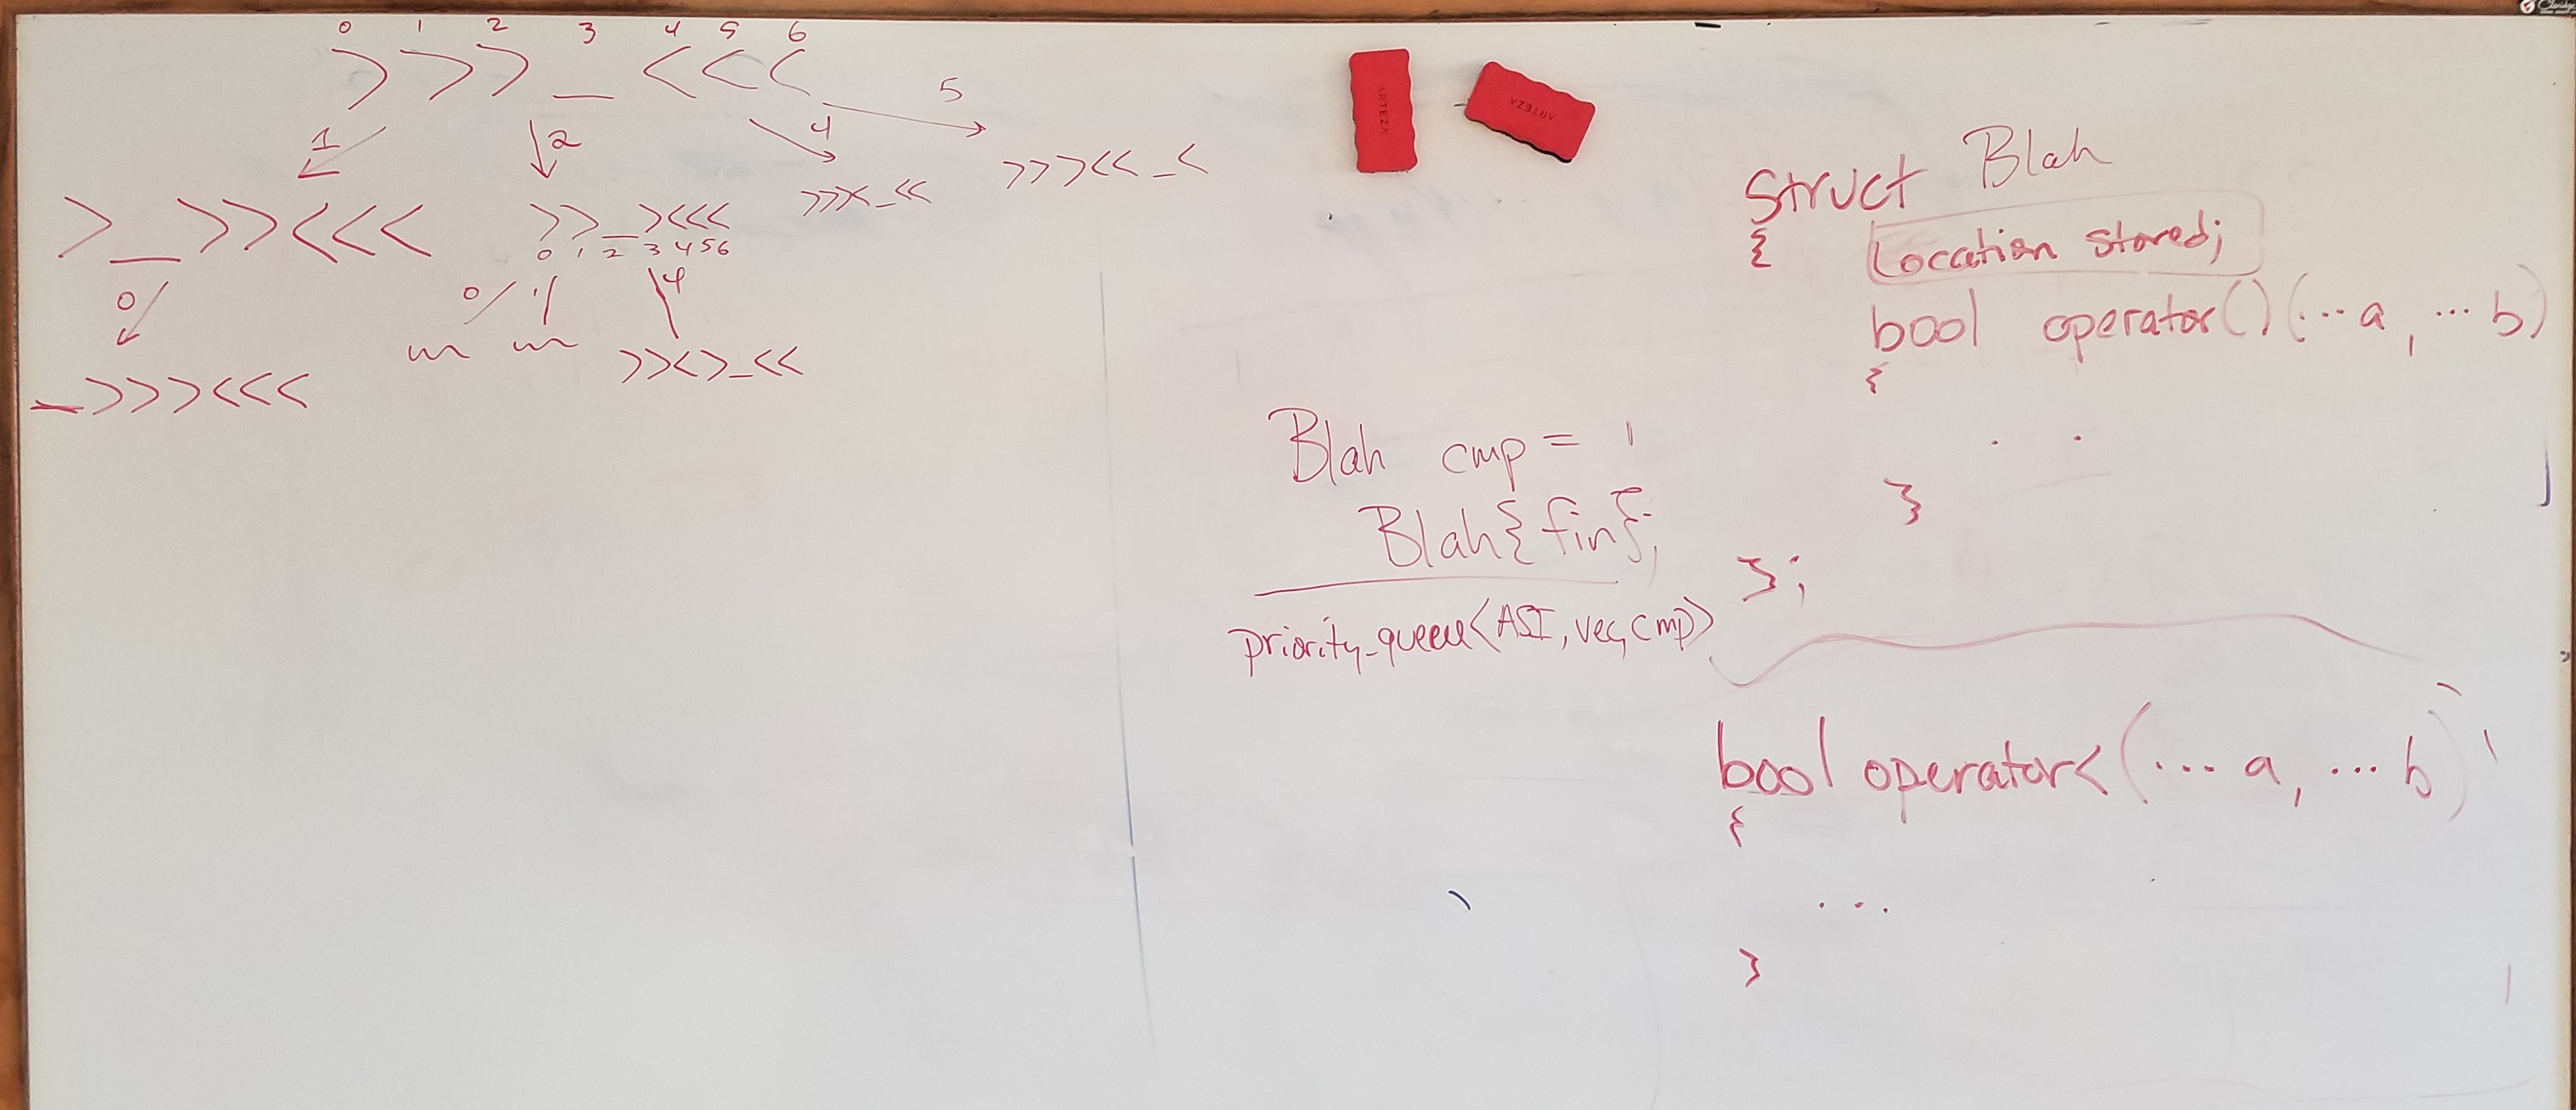 0 1 2 3 4 5 6
> > > _ < < <
1 2 4 5
> _ > > < < <
> > _ > < < <
0 1 2 3 4 5 6
> > > < _ < <
> > > < < _ <
0
0 1 4
> > < > _ < <
_ > > > < < <
ARTEZA
ARTEZA
Blah cmp =
Blah{fin};
priority_queue<ASI, vec, cmp>
Struct Blah
{ Location stored;
bool operator()(... a, ... b)
{
. .
}
};
bool operator<(... a, ... b)
{
...
}